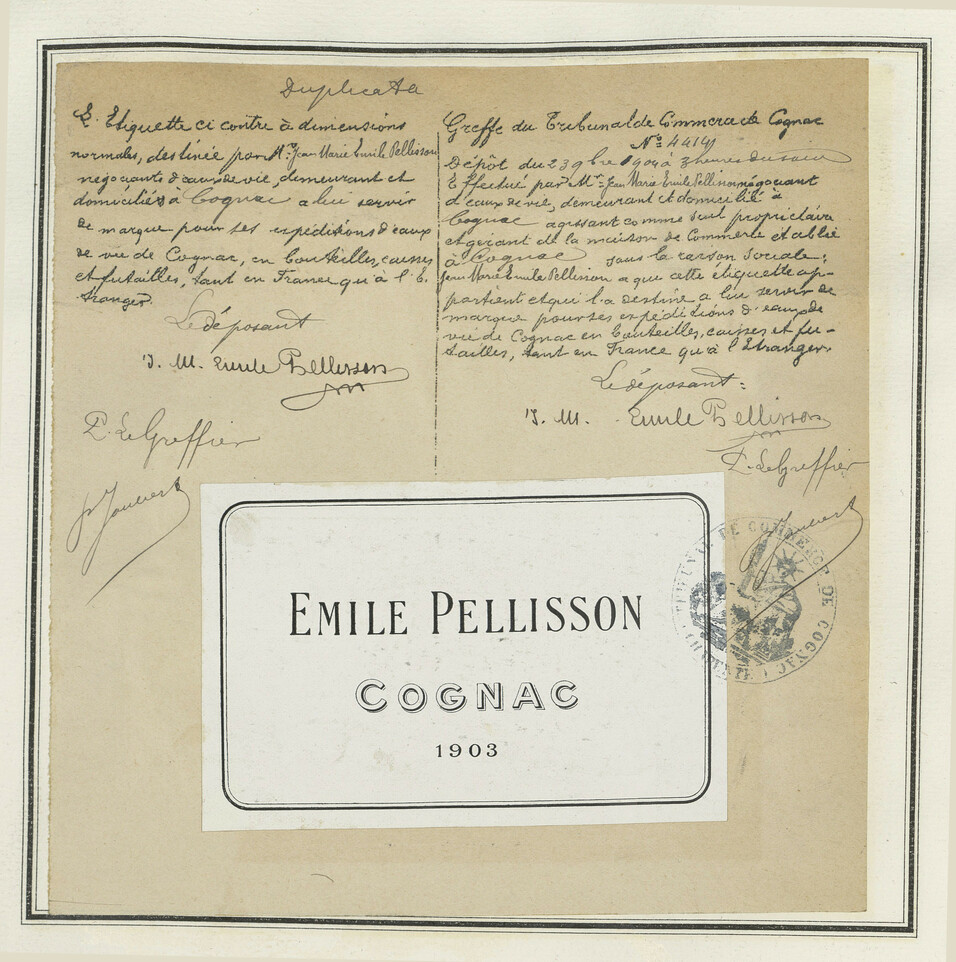 Duplicata
L'Etiquette ci contre à dimensions
normales, destinée par Mr. Jean Marie Emile Pellisson
négociants d'eaux de vie, demeurant et
domiciliés à Cognac a lui servir
de marque pour ses expéditions d'eaux
de vie de Cognac, en bouteilles, caisses
et futailles, tant en France qu'à l'E-
tranger.
Le déposant
J. M. Emile Pellisson
P. Le Greffier
Greffe du Tribunal de Commerce de Cognac
No. 4414
Dépôt du 23 9bre 1904 à 3 heures du soir
Effectué par Mr. Jean Marie Emile Pellisson négociant
d'eaux de vie, demeurant et domicilié à
Cognac agissant comme seul propriétaire
et gérant de la maison de Commerce établie
à Cognac sous la raison sociale:
Jean Marie Emile Pellisson a que cette étiquette ap-
partient et qui l'a destine a lui servir de
marque pour ses expéditions d'eaux de
vie de Cognac en bouteilles, caisses et fu-
tailles, tant en France qu'à l'Etranger.
Le déposant:
J. M. Emile Pellisson
P. Le Greffier
TRIBUNAL DE COMMERCE DE COGNAC
EMILE PELLISSON
COGNAC
1903